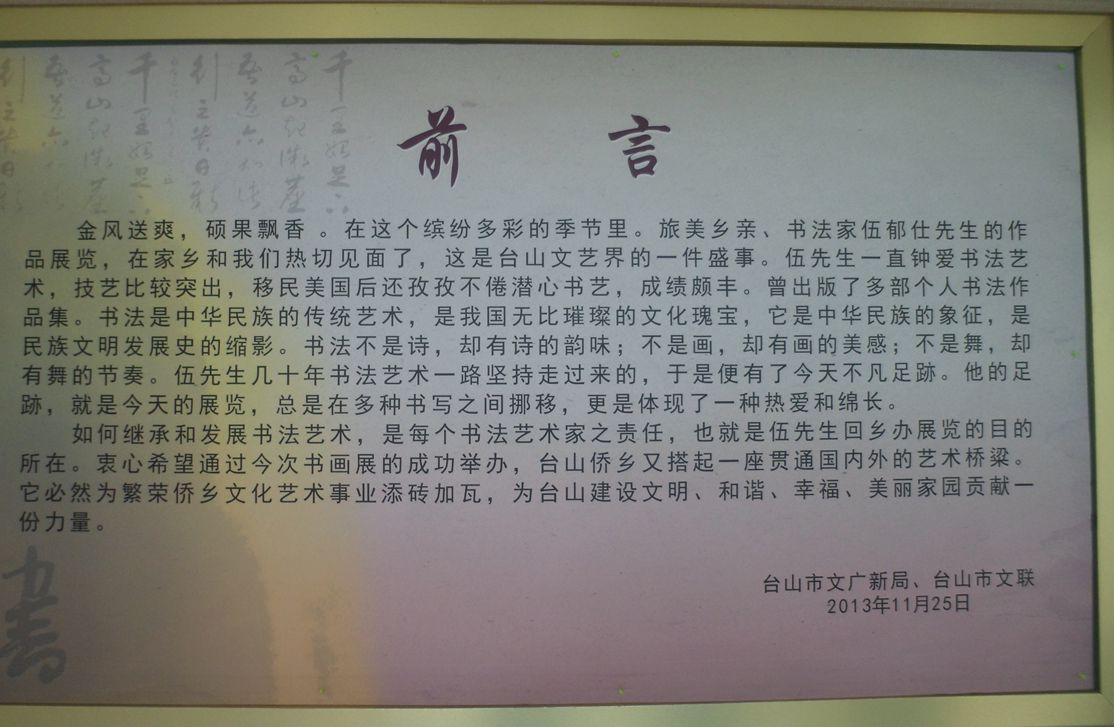 前言
金风送爽，硕果飘香 。在这个缤纷多彩的季节里。旅美乡亲、书法家伍郁仕先生的作
品展览，在家乡和我们热切见面了，这是台山文艺界的一件盛事。伍先生一直钟爱书法艺
术，技艺比较突出，移民美国后还孜孜不倦潜心书艺，成绩颇丰。曾出版了多部个人书法作
品集。书法是中华民族的传统艺术，是我国无比璀璨的文化瑰宝，它是中华民族的象征，是
民族文明发展史的缩影。书法不是诗，却有诗的韵味；不是画，却有画的美感；不是舞，却
有舞的节奏。伍先生几十年书法艺术一路坚持走过来的，于是便有了今天不凡足跡。他的足
跡，就是今天的展览，总是在多种书写之间挪移，更是体现了一种热爱和绵长。
如何继承和发展书法艺术，是每个书法艺术家之责任，也就是伍先生回乡办展览的目的
所在。衷心希望通过今次书画展的成功举办，台山侨乡又搭起一座贯通国内外的艺术桥梁。
它必然为繁荣侨乡文化艺术事业添砖加瓦，为台山建设文明、和谐、幸福、美丽家园贡献一
份力量。
台山市文广新局、台山市文联
2013年11月25日